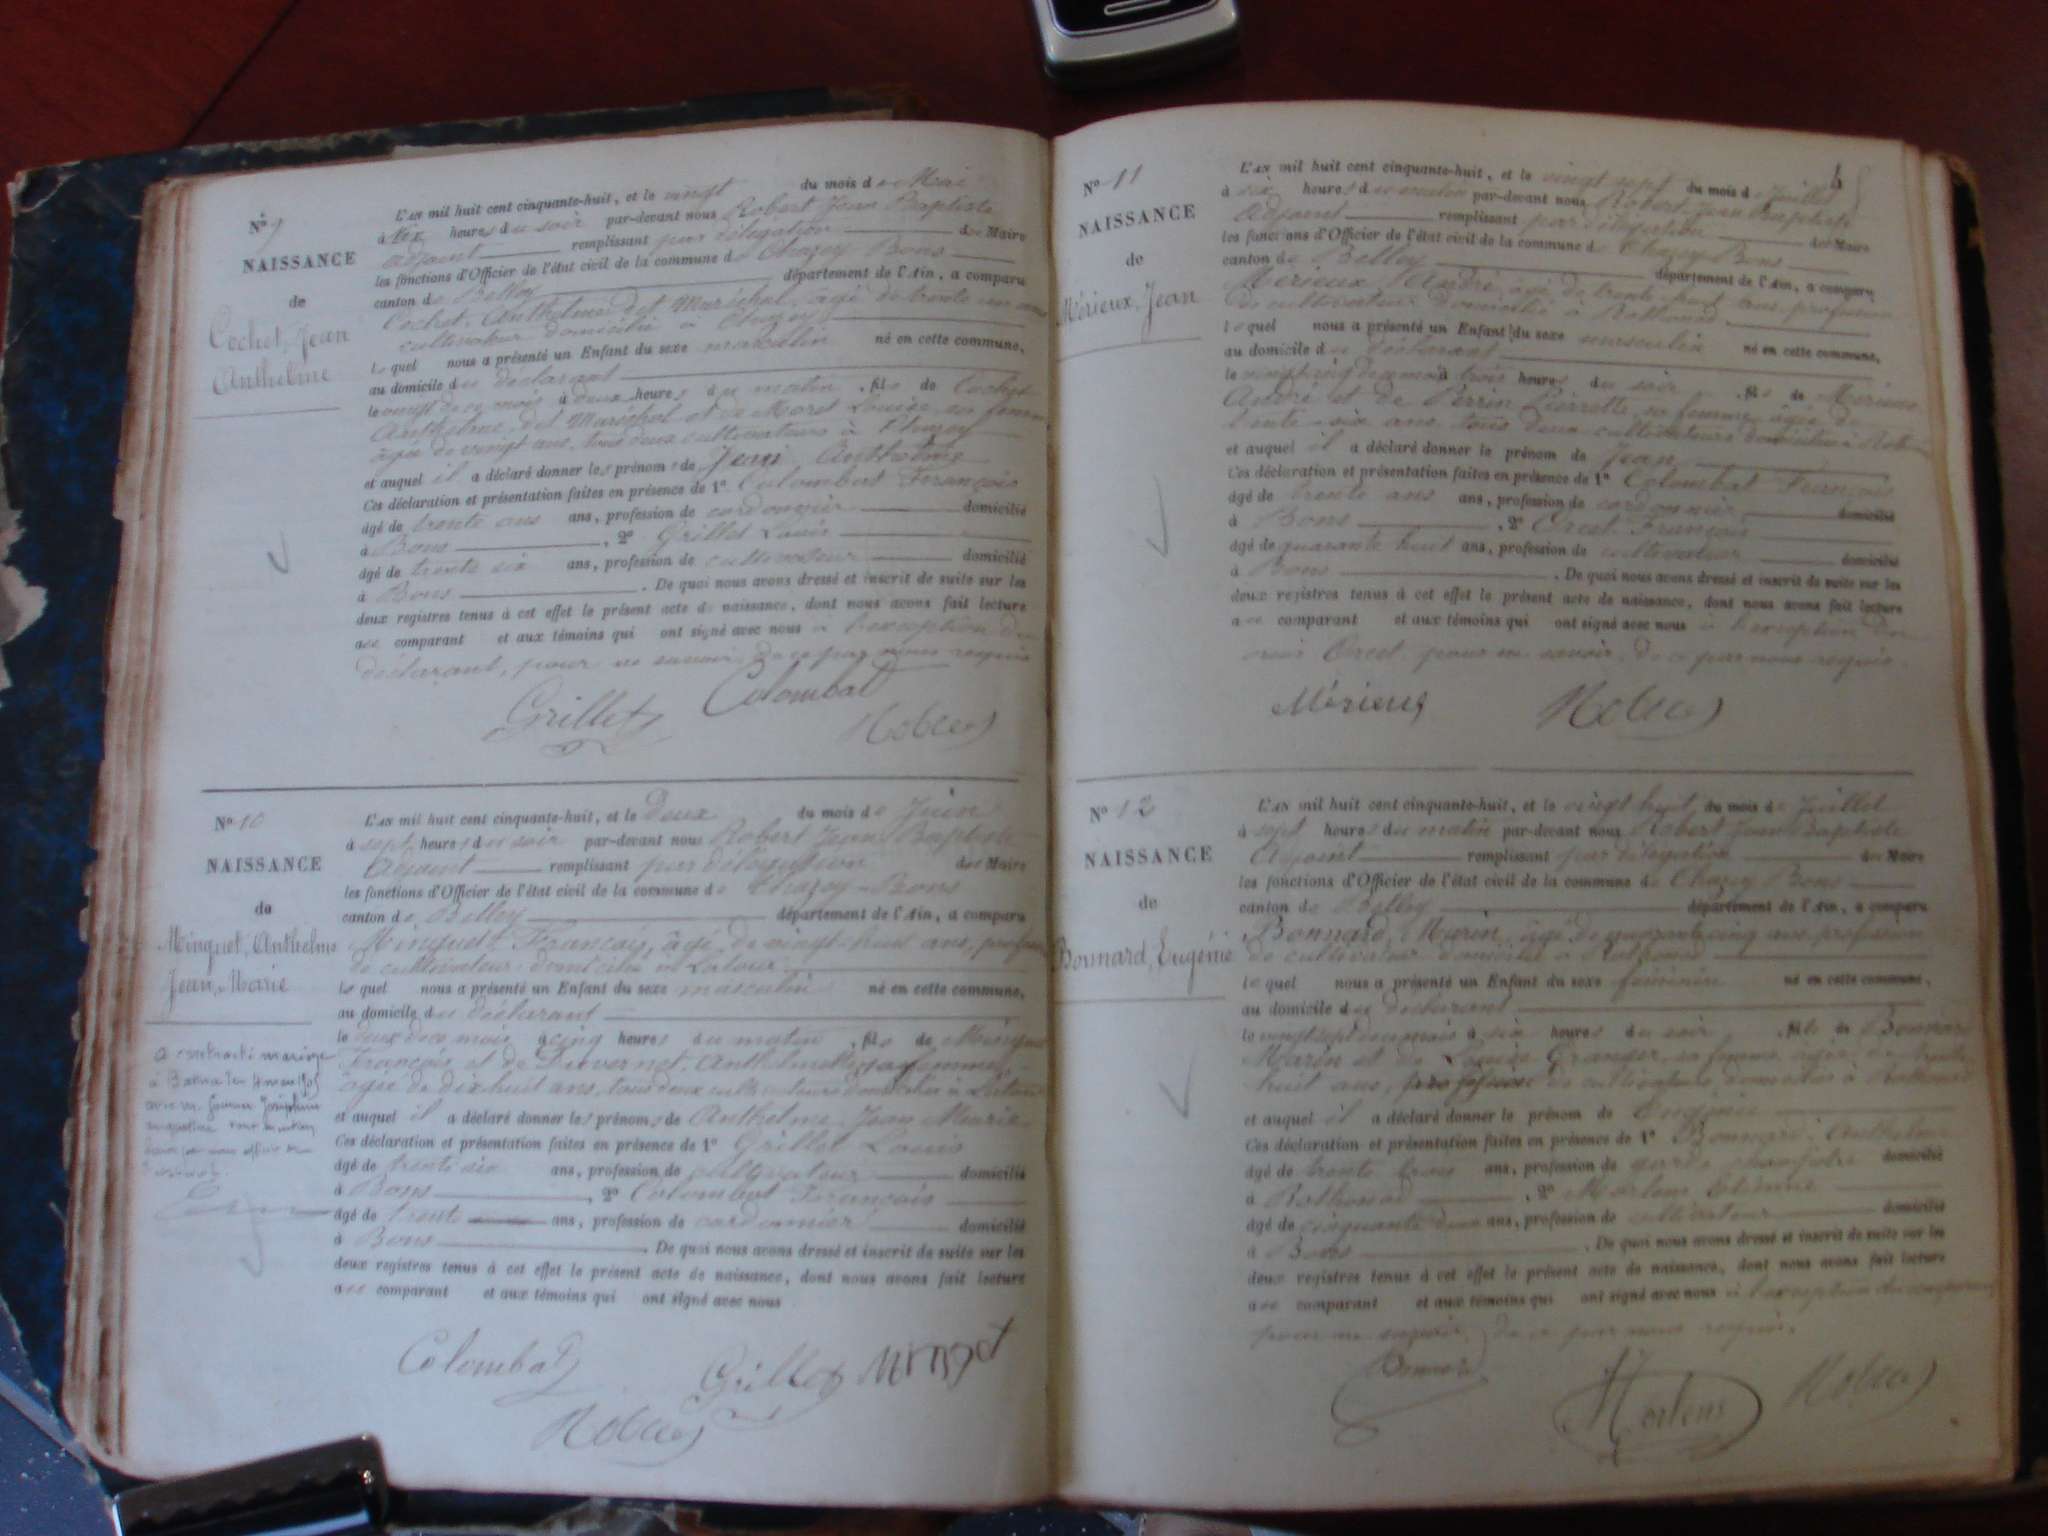 N° 9
NAISSANCE
de
Cochet, Jean
Anthelme
L'AN mil huit cent cinquante-huit, et le vingt du mois de Mai
à six heures du soir par-devant nous Robert Jean Baptiste
adjoint remplissant par délégation du Maire
les fonctions d'Officier de l'état civil de la commune de Chazey Bons
canton de Belley département de l'Ain, a comparu
Cochet, Anthelme dit Maréchal, âgé de trente un ans
cultivateur domicilié à Chazey
lequel nous a présenté un Enfant du sexe masculin né en cette commune,
au domicile du déclarant
le vingt de ce mois à deux heures du matin, fils de Cochet
Anthelme, dit Maréchal et de Moret Louise sa femme
âgée de vingt ans, tous deux cultivateurs à Chazey
et auquel il a déclaré donner les prénoms de Jean Anthelme
Ces déclaration et présentation faites en présence de 1° Colombat François
âgé de trente ans ans, profession de cordonnier domicilié
à Bons, 2° Grillet Louis
âgé de trente six ans, profession de cultivateur domicilié
à Bons. De quoi nous avons dressé et inscrit de suite sur les
deux registres tenus à cet effet le présent acte de naissance, dont nous avons fait lecture
au comparant et aux témoins qui ont signé avec nous à l'exception du
déclarant, pour ne savoir, de ce par nous requis
Grillet Colombat
Robert
N° 10
NAISSANCE
de
Minguet, Anthelme
Jean, Marie
a contracté mariage
à
avec
L'AN mil huit cent cinquante-huit, et le Deux du mois de Juin
à sept heures du soir par-devant nous Robert Jean Baptiste
Adjoint remplissant par délégation du Maire
les fonctions d'Officier de l'état civil de la commune de Chazey-Bons
canton de Belley département de l'Ain, a comparu
Minguet François, âgé de vingt-huit ans, profession
de cultivateur, domicilié à Latour
lequel nous a présenté un Enfant du sexe masculin né en cette commune,
au domicile du déclarant
le deux de ce mois à cinq heures du matin, fils de Minguet
François et de Duvernet, Anthelmette sa femme
âgée de dix huit ans, tous deux cultivateurs domiciliés à Latour
et auquel il a déclaré donner les prénoms de Anthelme Jean Marie
Ces déclaration et présentation faites en présence de 1° Grillet Louis
âgé de trente six ans, profession de cultivateur domicilié
à Bons, 2° Colombat François
âgé de trente ans, profession de cordonnier domicilié
à Bons. De quoi nous avons dressé et inscrit de suite sur les
deux registres tenus à cet effet le présent acte de naissance, dont nous avons fait lecture
au comparant et aux témoins qui ont signé avec nous
Colombat Grillet Minget
Robert
N° 11
NAISSANCE
de
Mérieux, Jean
L'AN mil huit cent cinquante-huit, et le vingt sept du mois de Juillet
à six heures du matin par-devant nous Robert Jean Baptiste
Adjoint remplissant par délégation du Maire
les fonctions d'Officier de l'état civil de la commune de Chazey Bons
canton de Belley département de l'Ain, a comparu
Mérieux, André, âgé de trente huit ans, profession
de cultivateur domicilié à Rothonod
lequel nous a présenté un Enfant du sexe masculin né en cette commune,
au domicile du déclarant
le vingt cinq de ce mois à trois heures du soir, fils de Mérieux
André et de Perrin Pierrette, sa femme, âgée de
trente-six ans, tous deux cultivateurs domiciliés à
et auquel il a déclaré donner le prénom de Jean
Ces déclaration et présentation faites en présence de 1° Colombat François
âgé de trente ans ans, profession de cordonnier domicilié
à Bons, 2° Orcet François
âgé de quarante huit ans, profession de cultivateur domicilié
à Bons. De quoi nous avons dressé et inscrit de suite sur les
deux registres tenus à cet effet le présent acte de naissance, dont nous avons fait lecture
au comparant et aux témoins qui ont signé avec nous à l'exception du
Orcet pour ne savoir, de ce par nous requis.
Mérieux Robert
N° 12
NAISSANCE
de
Bonnard, Eugénie
L'AN mil huit cent cinquante-huit, et le vingt huit du mois de Juillet
à sept heures du matin par-devant nous Robert Jean Baptiste
Adjoint remplissant par délégation du Maire
les fonctions d'Officier de l'état civil de la commune de Chazey Bons
canton de Belley département de l'Ain, a comparu
Bonnard, Marin, âgé de quarante cinq ans profession
de cultivateur domicilié à Rothonod
lequel nous a présenté un Enfant du sexe féminin né en cette commune,
au domicile du déclarant
le vingt sept de ce mois à six heures du soir, fille de Bonnard
Marin et de Louise Granger sa femme âgée de trente
huit ans, profession de cultivateurs domiciliés à Rothonod
et auquel il a déclaré donner le prénom de Eugénie
Ces déclaration et présentation faites en présence de 1° Bonnard Anthelme
âgé de trente trois ans, profession de garde champêtre domicilié
à Rothonod, 2° Martens Etienne
âgé de cinquante deux ans, profession de cultivateur domicilié
à Bons. De quoi nous avons dressé et inscrit de suite sur les
deux registres tenus à cet effet le présent acte de naissance, dont nous avons fait lecture
au comparant et aux témoins qui ont signé avec nous à l'exception du comparant
pour ne savoir, de ce par nous requis.
Bonnard Martens Robert